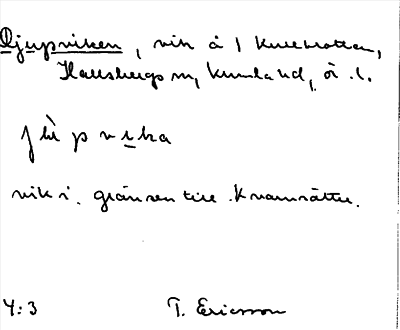 Djupviken, vik å 1 Kvarbrotten,
Hallsbergs sn, Kumla hd, ör. l.
jùpvika
vik i gränsen till Kvarnsätter.
4:3 T. Ericsson